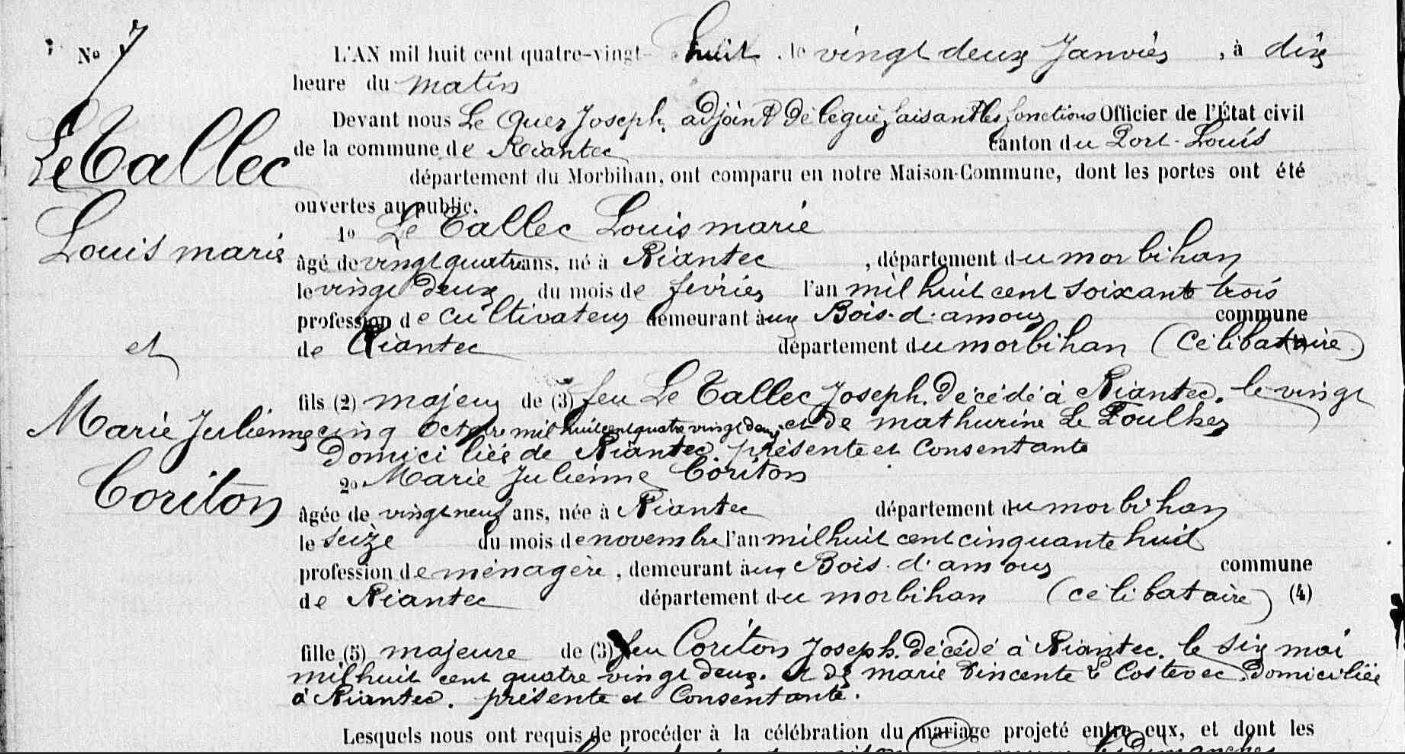 No 7
Le Tallec
Louis marie
et
Marie Julienne
Coriton
L'AN mil huit cent quatre-vingt huit, le vingt deux Janvier, à dix
heure du matin
Devant nous Le Quer Joseph, adjoint délégué faisant les fonctions Officier de l'État civil
de la commune de Riantec canton du Port-Louis
département du Morbihan, ont comparu en notre Maison-Commune, dont les portes ont été
ouvertes au public.
1o Le Tallec Louis marie
âgé de vingt quatre ans, né à Riantec, département du morbihan
le vingt deux du mois de février l'an mil huit cent soixante trois
profession de cultivateur demeurant au Bois-d'amour commune
de Riantec département du morbihan (célibataire)
fils (2) majeur de (3) feu Le Tallec Joseph, décédé à Riantec, le vingt
cinq Octobre mil huit cent quatre vingt deux, et de mathurine Le
domiciliée de Riantec, présente et consentante
2o Marie Julienne Coriton
âgée de vingt neuf ans, née à Riantec département du morbihan
le seize du mois de novembre l'an mil huit cent cinquante huit
profession de ménagère, demeurant au Bois-d'amour commune
de Riantec département du morbihan (célibataire) (4)
fille (5) majeure de (3) feu Coriton Joseph, décédé à Riantec, le six mai
mil huit cent quatre vingt deux, et de marie Vincente Le domiciliée
à Riantec, présente et consentante.
Lesquels nous ont requis de procéder à la célébration du mariage projeté entre eux, et dont les